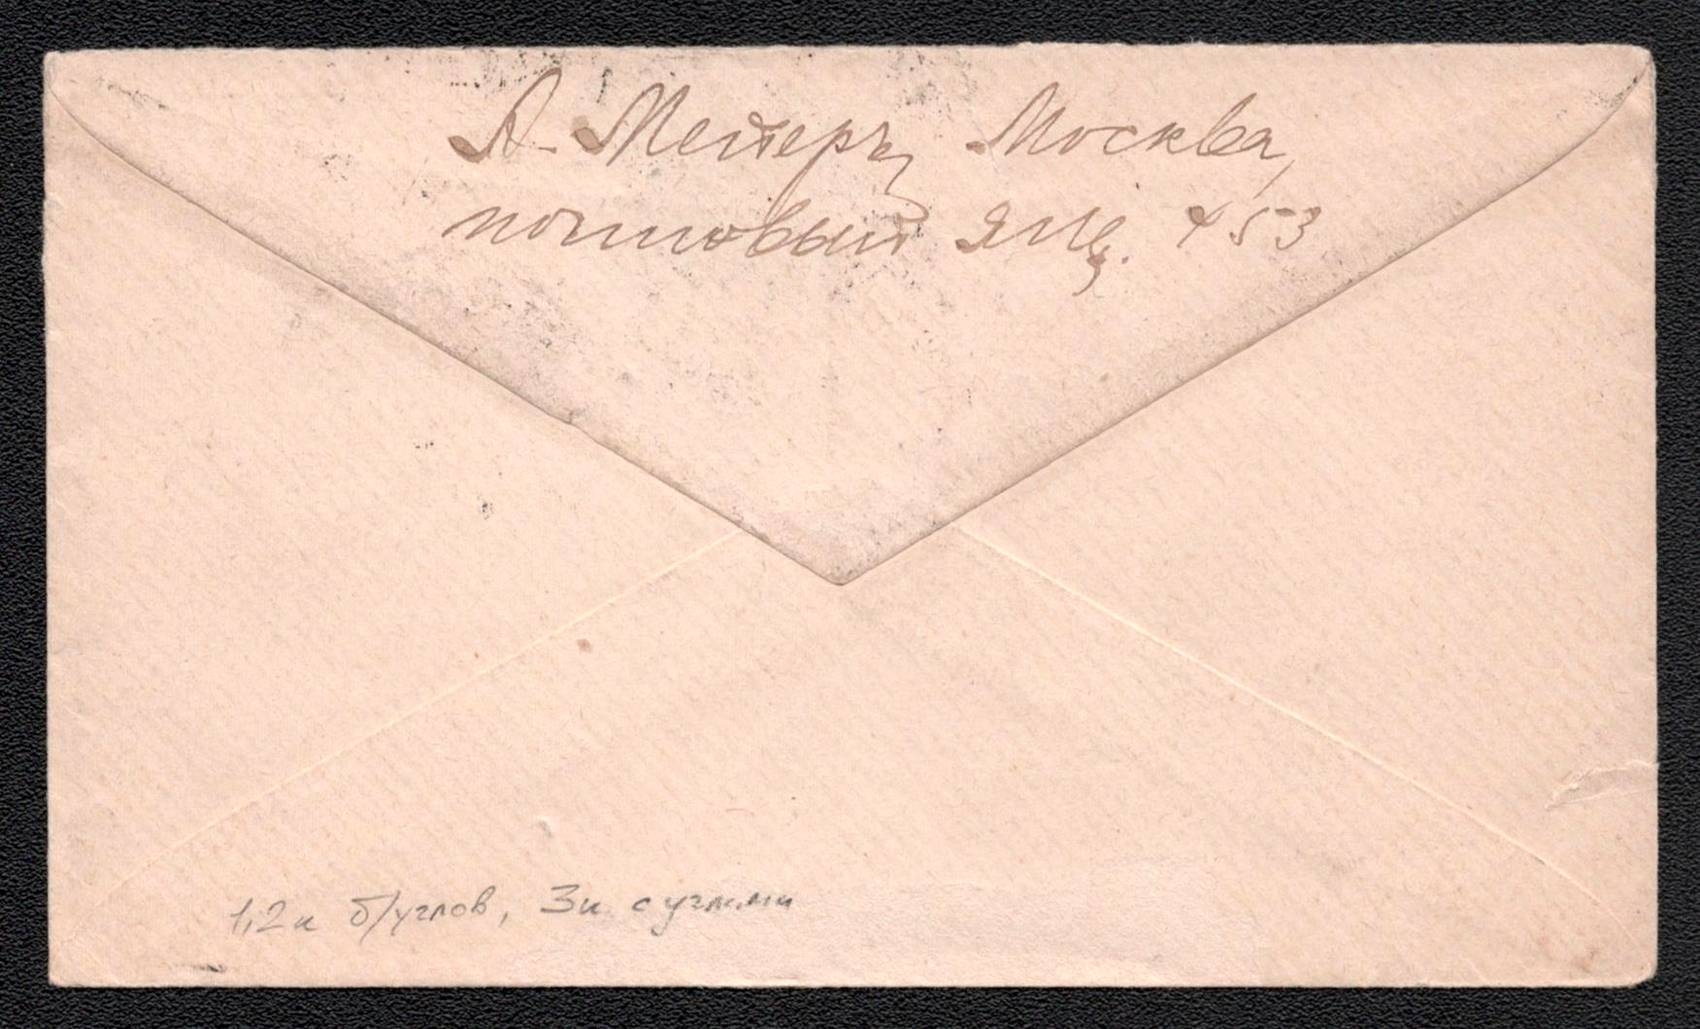 А. Мейеръ, Москва,
почтовый ящ. 453
1,2к б/углов, 3к с углами